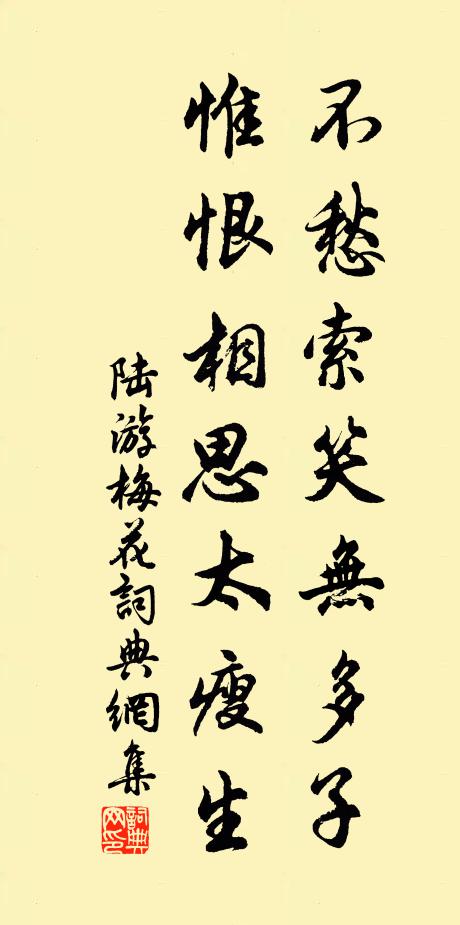 不愁索笑無多子
惟恨相思太瘦生
陆游梅花詞典網集
詞典網印